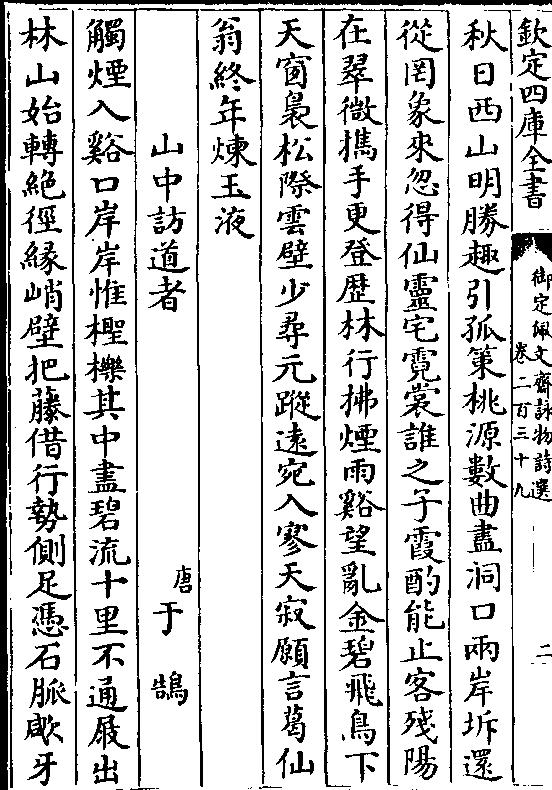 欽定四庫全書
御定佩文齋詠物詩選
卷二百三十九
二
秋日西山明勝趣引孤策桃源數曲盡洞口兩岸坼還
從罔象來忽得仙靈宅霓裳誰之子霞酌能止客殘陽
在翠微攜手更登歷林行拂煙雨谿望亂金碧飛鳥下
天窗裊松際雲壁少尋元蹤遠宛入寥天寂願言葛仙
翁終年煉玉液
山中訪道者
唐于鵠
觸煙入谿口岸岸惟檉櫟其中盡碧流十里不通屐出
林山始轉絶徑緣峭壁把藤借行勢側足憑石脈歘牙